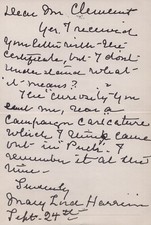 Dear Mr. Clement
Yes I received
your letter with the
certificate, but I don't
understand what
it means?
The "curiosity" you
sent me, was a
Campaign Caricature
which I think came
out in "Puck". I
remember it at the
time—
Sincerely
Mary Lord Harrison
Sept. 24th